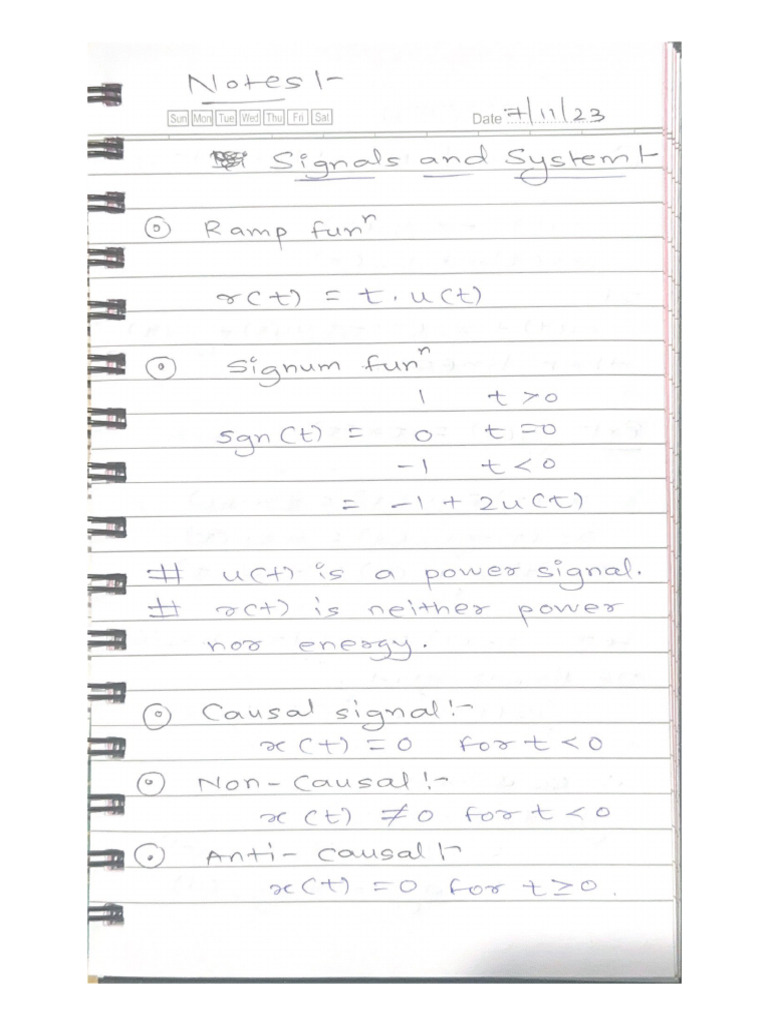 Notes :-
Sun Mon Tue Wed Thu Fri Sat Date 7/11/23
Signals and System :-
⊙ Ramp funⁿ
r(t) = t. u(t)
⊙ Signum funⁿ
1 t > 0
sgn(t) = 0 t = 0
-1 t < 0
= -1 + 2u(t)
# u(t) is a power signal.
# r(t) is neither power
nor energy.
⊙ Causal signal :-
x(t) = 0 for t < 0
⊙ Non-causal :-
x(t) ≠ 0 for t < 0
⊙ Anti-causal :-
x(t) = 0 for t ≥ 0.